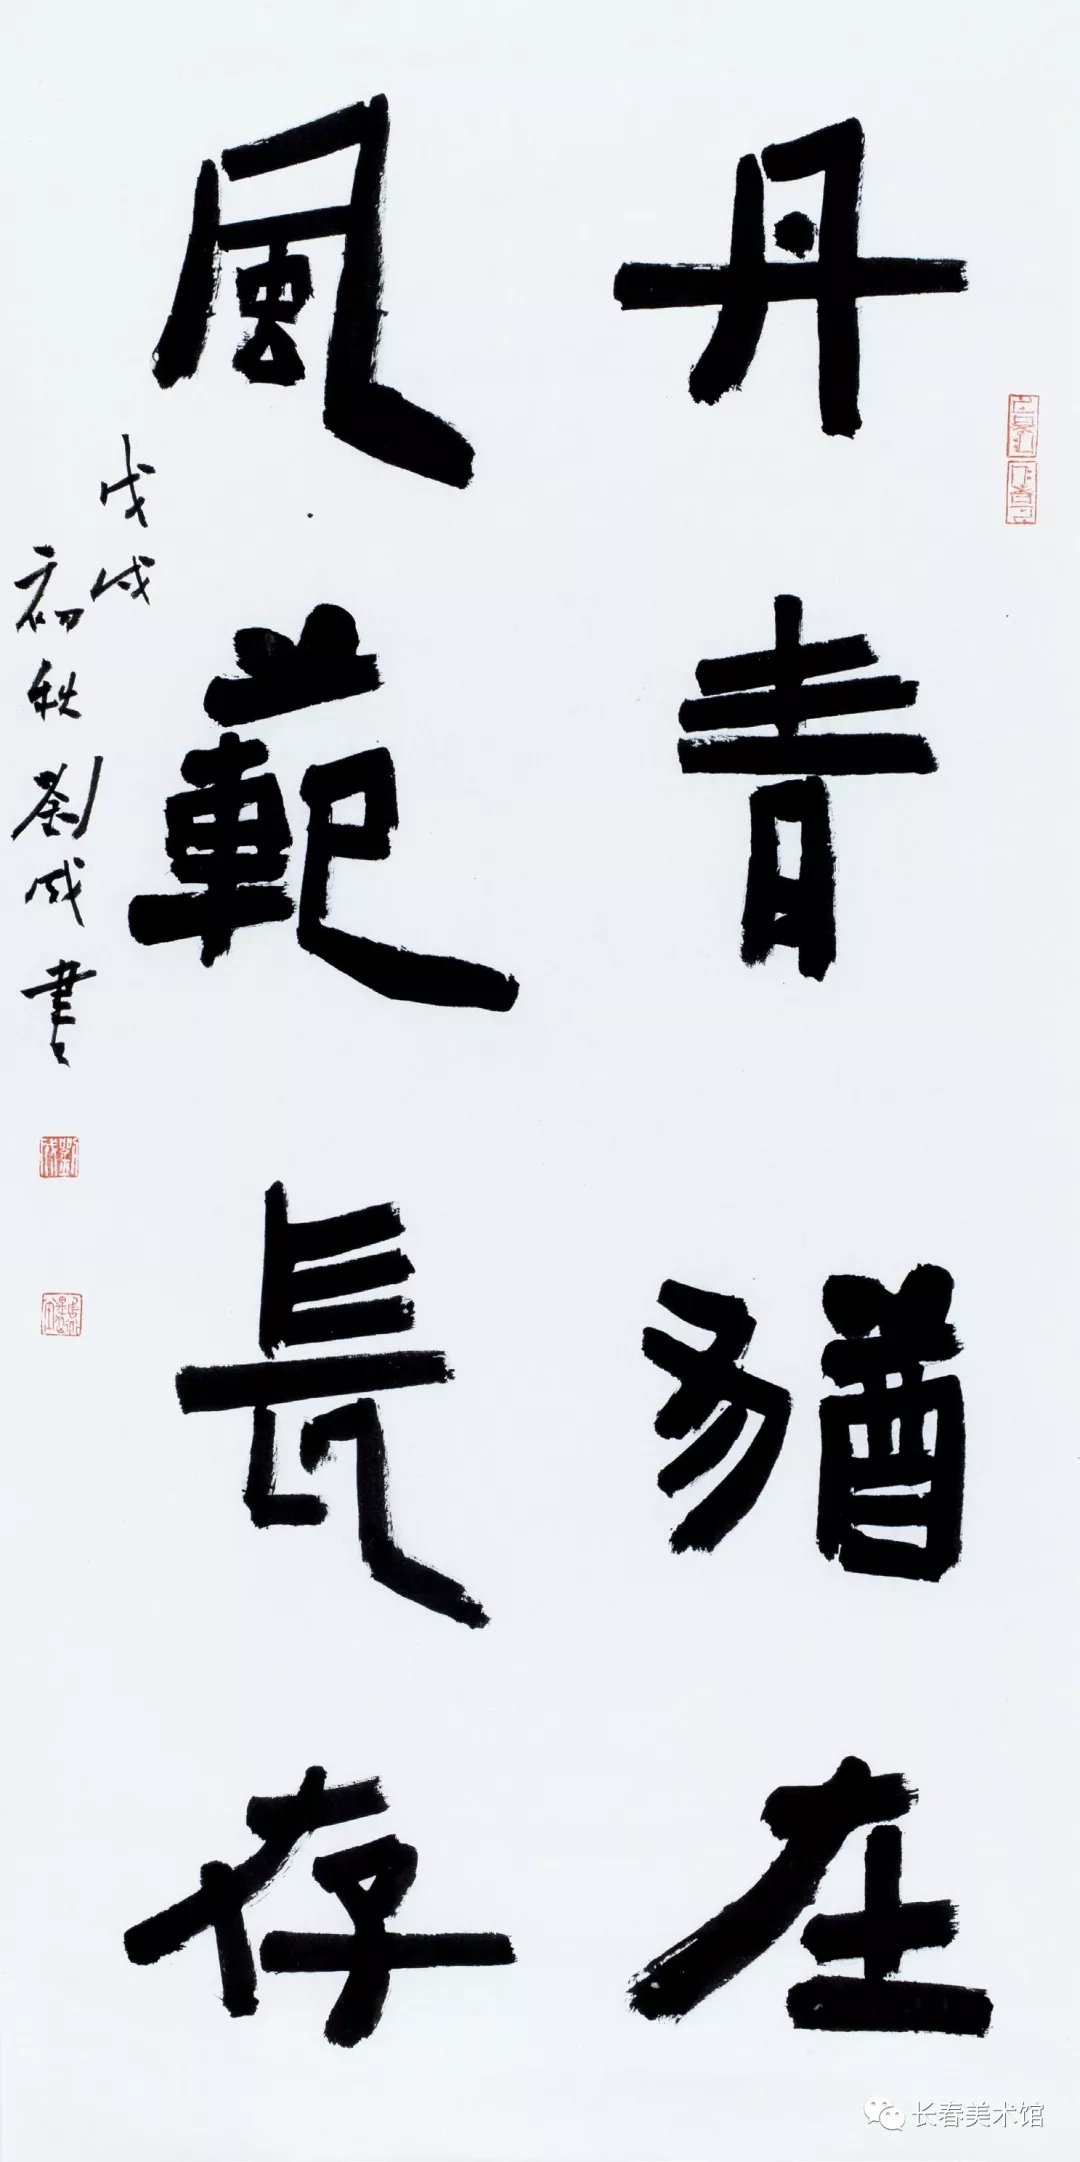 丹青猶在
風範長存
戊戌
初秋劉成書
长春美术馆